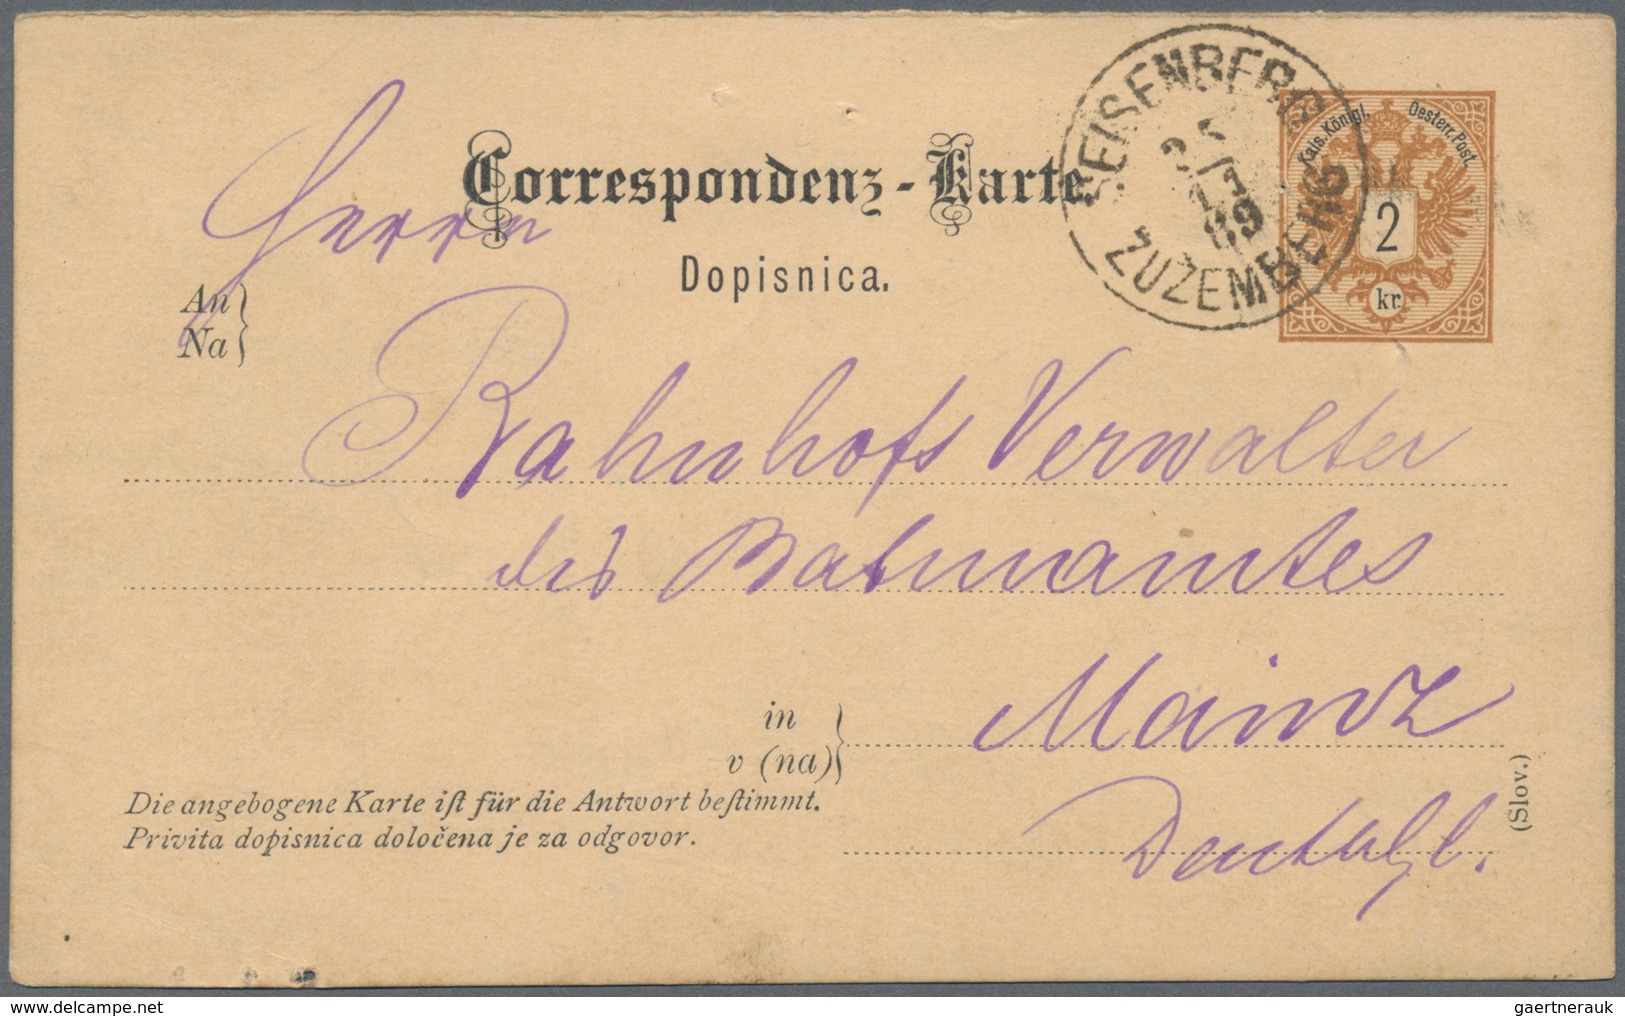 Correspondenz-Karte.
Dopisnica.
SEISENBERG
25
11
89
ŽUŽEMBERG
Kais. Königl. Oesterr. Post.
2
kr.
Herrn
An
Na
Bahnhofs Verwalter
des
in Mainz
v (na)
Die angebogene Karte ist für die Antwort bestimmt.
Privita dopisnica določena je za odgovor.
(Slov.)
gaertnerauk